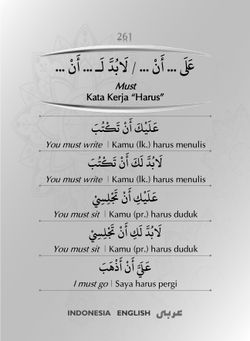 261
عَلَى ... أَنْ ... / لَابُدَّ لَـ ... أَنْ ...
Must
Kata Kerja “Harus”
عَلَيْكَ أَنْ تَكْتُبَ
You must write | Kamu (lk.) harus menulis
لَابُدَّ لَكَ أَنْ تَكْتُبَ
You must write | Kamu (lk.) harus menulis
عَلَيْكِ أَنْ تَجْلِسِيْ
You must sit | Kamu (pr.) harus duduk
لَابُدَّ لَكِ أَنْ تَجْلِسِيْ
You must sit | Kamu (pr.) harus duduk
عَلَيَّ أَنْ أَذْهَبَ
I must go | Saya harus pergi
INDONESIA ENGLISH عربي